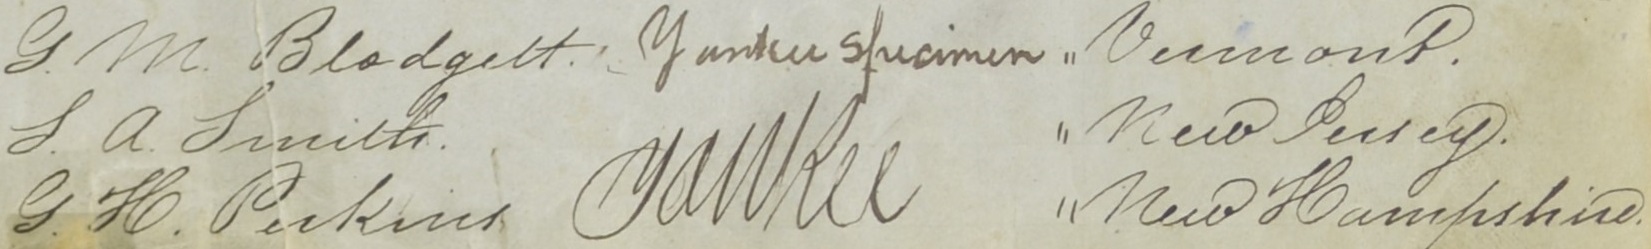 G. M. Blodgett. Yankee specimen " Vermont.
S. A. Smith. " New Jersey.
G. H. Perkins Yankee " New Hampshire.